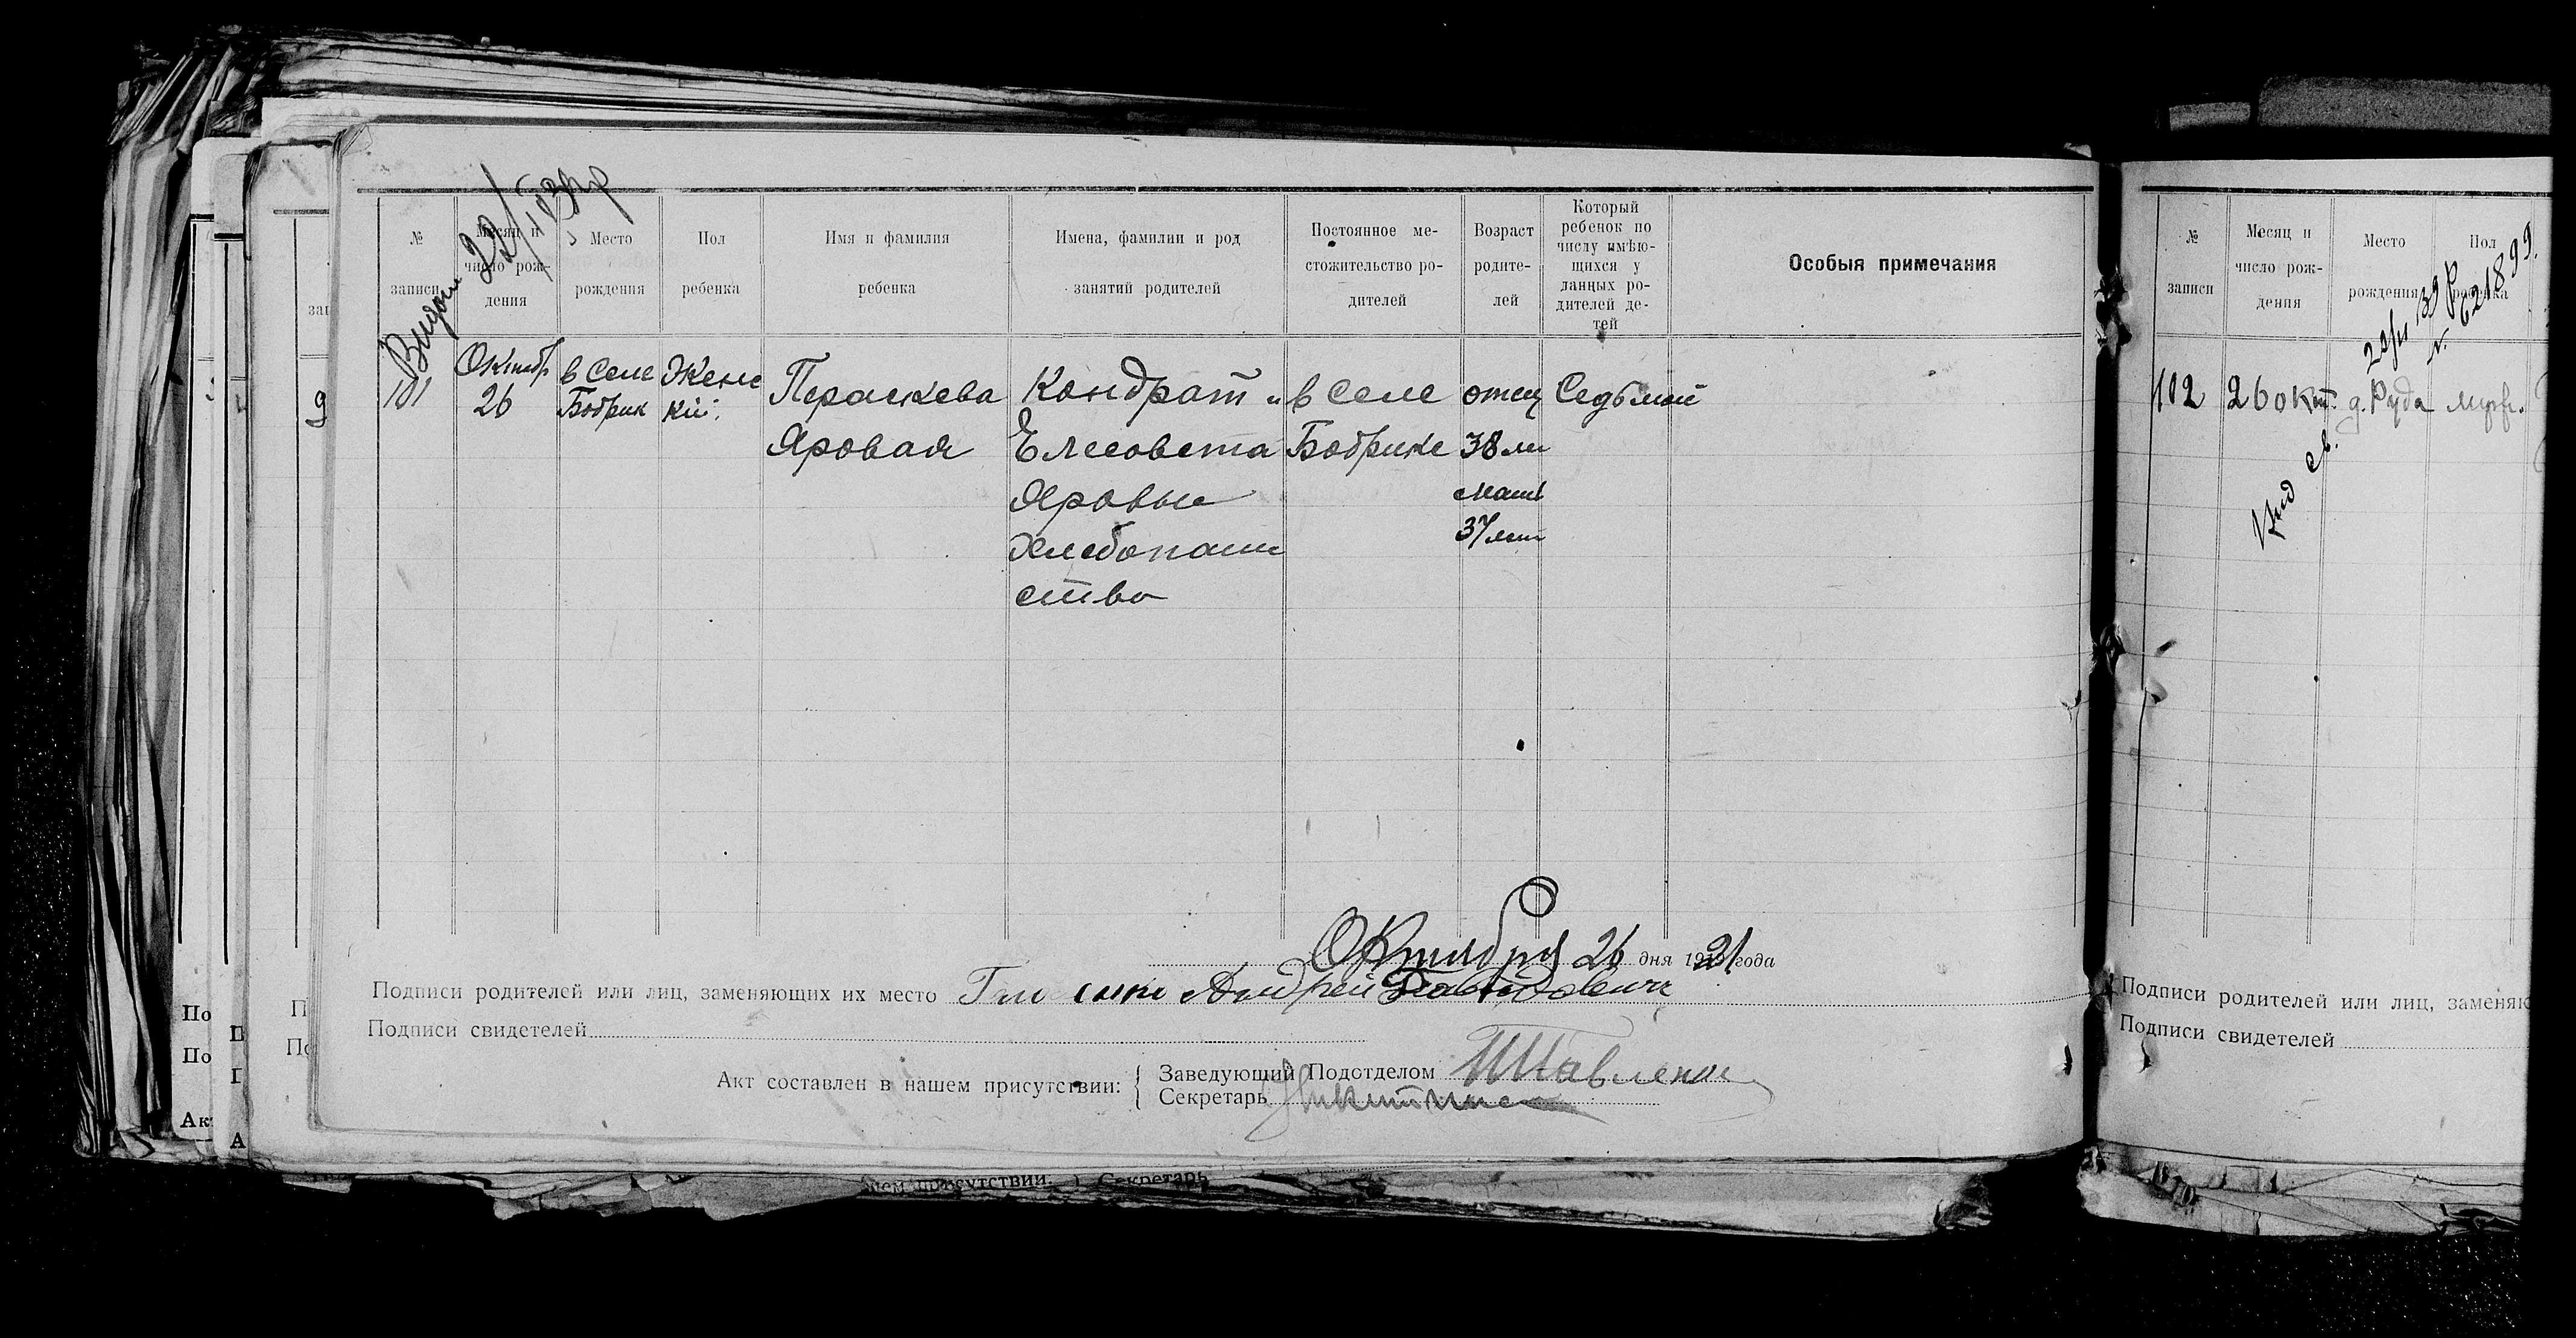 № записи
Месяц и число рождения
Место рождения
Пол ребенка
Имя и фамилия ребенка
Имена, фамилии и род занятий родителей
Постоянное местожительство родителей
Возраст родителей
Который ребенок по числу имѣющихся у данных родителей детей
Особыя примечания
101
Октябр
26
в селе
Бобрик
Женс
кій
Пераскева
Яровая
Кондрат и
Елесовета
Яровые
Хлебопаш
ство
в селе
Бобрике
отец
38 ле
мать
37 лет
Седьмой
Октября 26 дня 1921 года
Подписи родителей или лиц, заменяющих их место
Андрей Давидович
Подписи свидетелей
Акт составлен в нашем присутствии:
Заведующий Подотделом
Секретарь
№ записи
Месяц и число рождения
Место рождения
Пол
102
26 окт.
д. Руда
Подписи родителей или лиц, заменяю
Подписи свидетелей
нем присутствии: } Секретарь